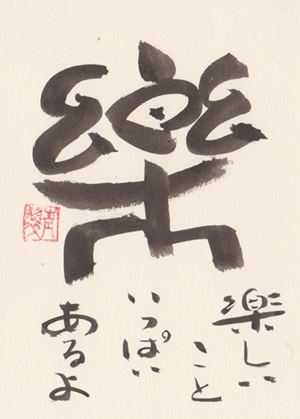 樂
楽しい
こと
いっぱい
あるよ